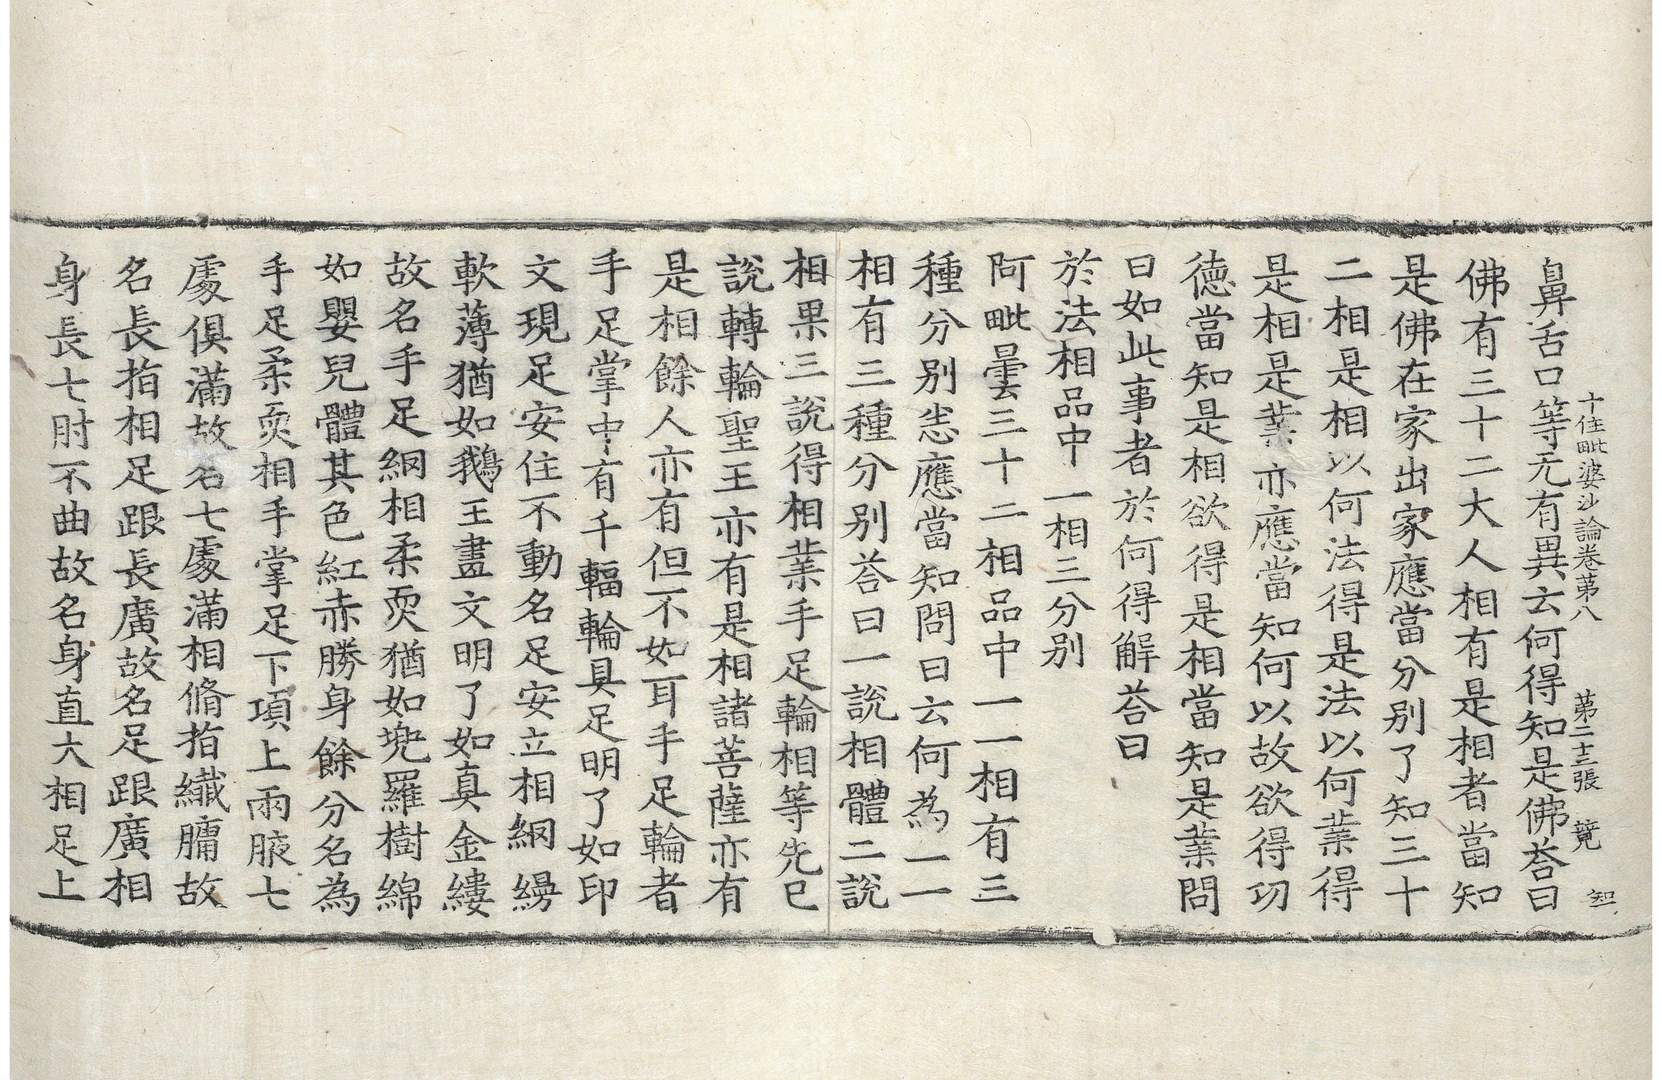 十住毗婆沙論卷苐八　苐二十三張　競　初
鼻舌口等无有異云何得知是佛荅曰
佛有三十二大人相有是相者當知
是佛在家出家應當分別了知三十
二相是相以何法得是法以何業得
是相是業亦應當知何以故欲得功
德當知是相欲得是相當知是業問
曰如此事者於何得解荅曰
於法相品中　一相三分別
阿毗曇三十二相品中一一相有三
種分別恙應當知問曰云何為一一
相有三種分別荅曰一說相體二說
相果三說得相業手足輪相等先已
說轉輪聖王亦有是相諸菩薩亦有
是相餘人亦有但不如耳手足輪者
手足掌中有千輻輪具足明了如印
文現足安住不動名足安立相網縵
軟薄猶如鵝王畫文明了如真金縷
故名手足網相柔耎猶如兠羅樹綿
如嬰兒體其色紅赤勝身餘分名為
手足柔耎相手掌足下項上兩腋七
處俱滿故名七處滿相脩指纖𦟛故
名長指相足跟長廣故名足跟廣相
身長七肘不曲故名身直大相足上